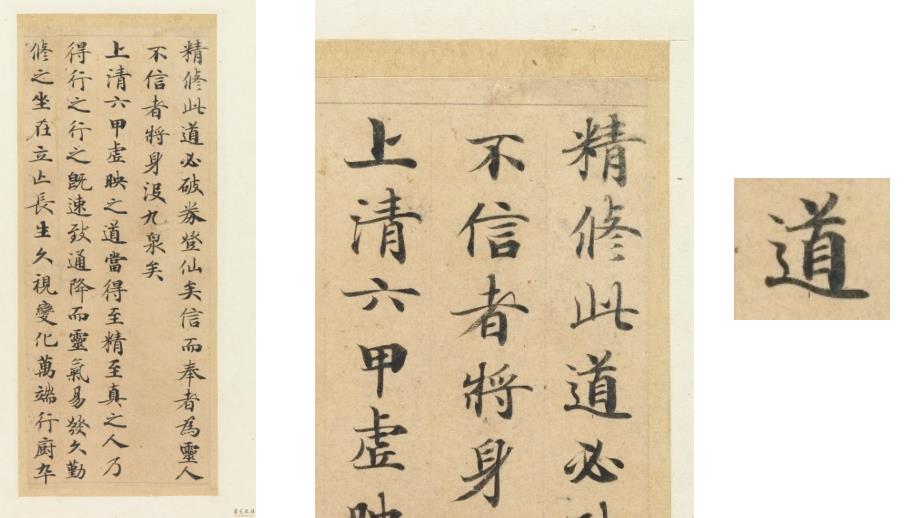 精修此道必破券登仙矣信而奉者為靈人
不信者將身沒九泉矣
上清六甲虛映之道當得至精至真之人乃
得行之行之既速致通降而靈氣易發久勤
修之坐在立亡長生久視變化萬端行廚卒
精修此道必
不信者將身
上清六甲虛映
道